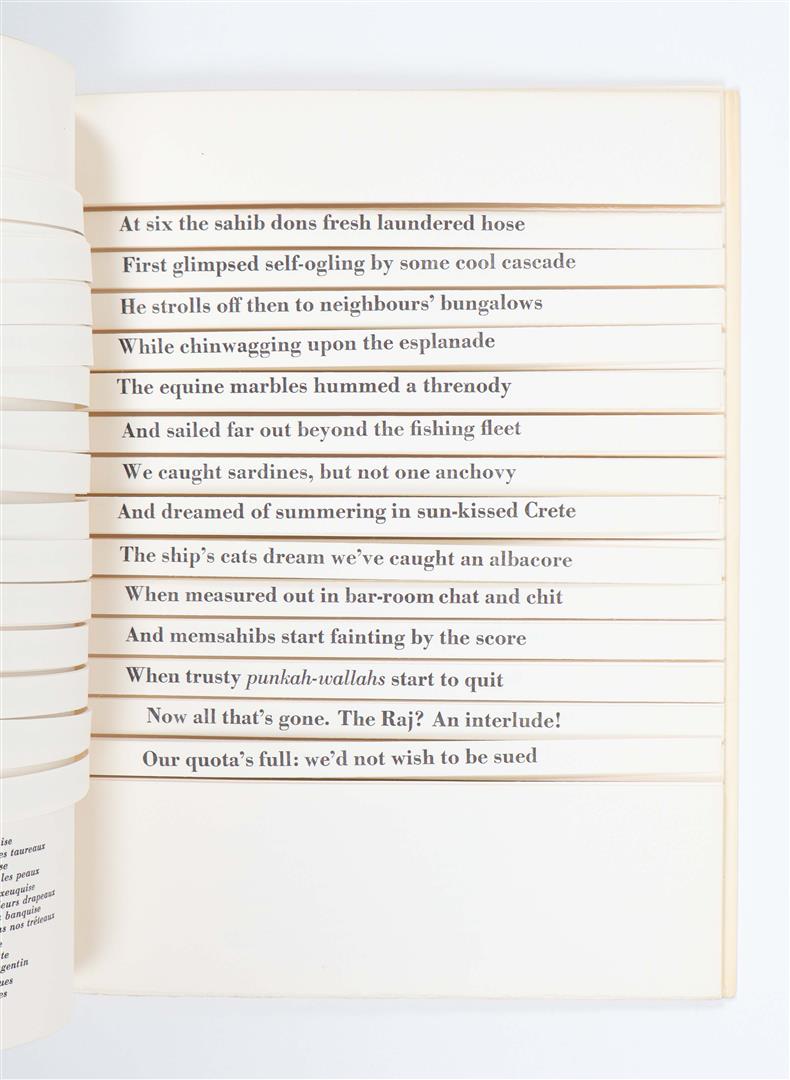 At six the sahib dons fresh laundered hose
First glimpsed self-ogling by some cool cascade
He strolls off then to neighbours' bungalows
While chinwagging upon the esplanade
The equine marbles hummed a threnody
And sailed far out beyond the fishing fleet
We caught sardines, but not one anchovy
And dreamed of summering in sun-kissed Crete
The ship's cats dream we've caught an albacore
When measured out in bar-room chat and chit
And memsahibs start fainting by the score
When trusty punkah-wallahs start to quit
Now all that's gone. The Raj? An interlude!
Our quota's full: we'd not wish to be sued
taureaux
les peaux
drapeaux
banquise
nos tréteaux